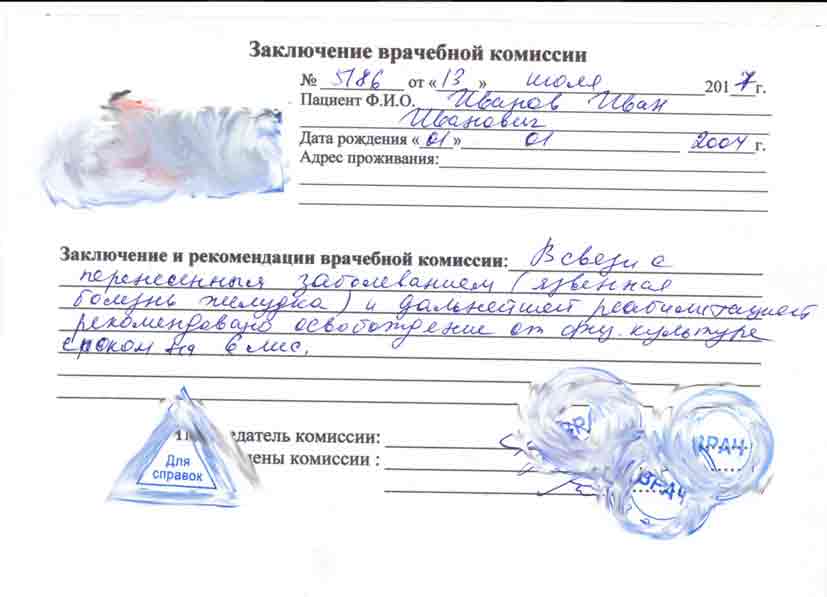 Заключение врачебной комиссии
№ 5186 от « 13 » июля 2017 г.
Пациент Ф.И.О. Иванов Иван
Иванович
Дата рождения « 01 » 01 2004 г.
Адрес проживания:
Заключение и рекомендации врачебной комиссии: В связи с
перенесенным заболеванием (язвенная
болезнь желудка) и дальнейшей реабилитацией
рекомендовано освобождение от физ. культуре
сроком на 6 мес.
комиссии:
комиссии :
Для
справок
ВРАЧ
ВРАЧ